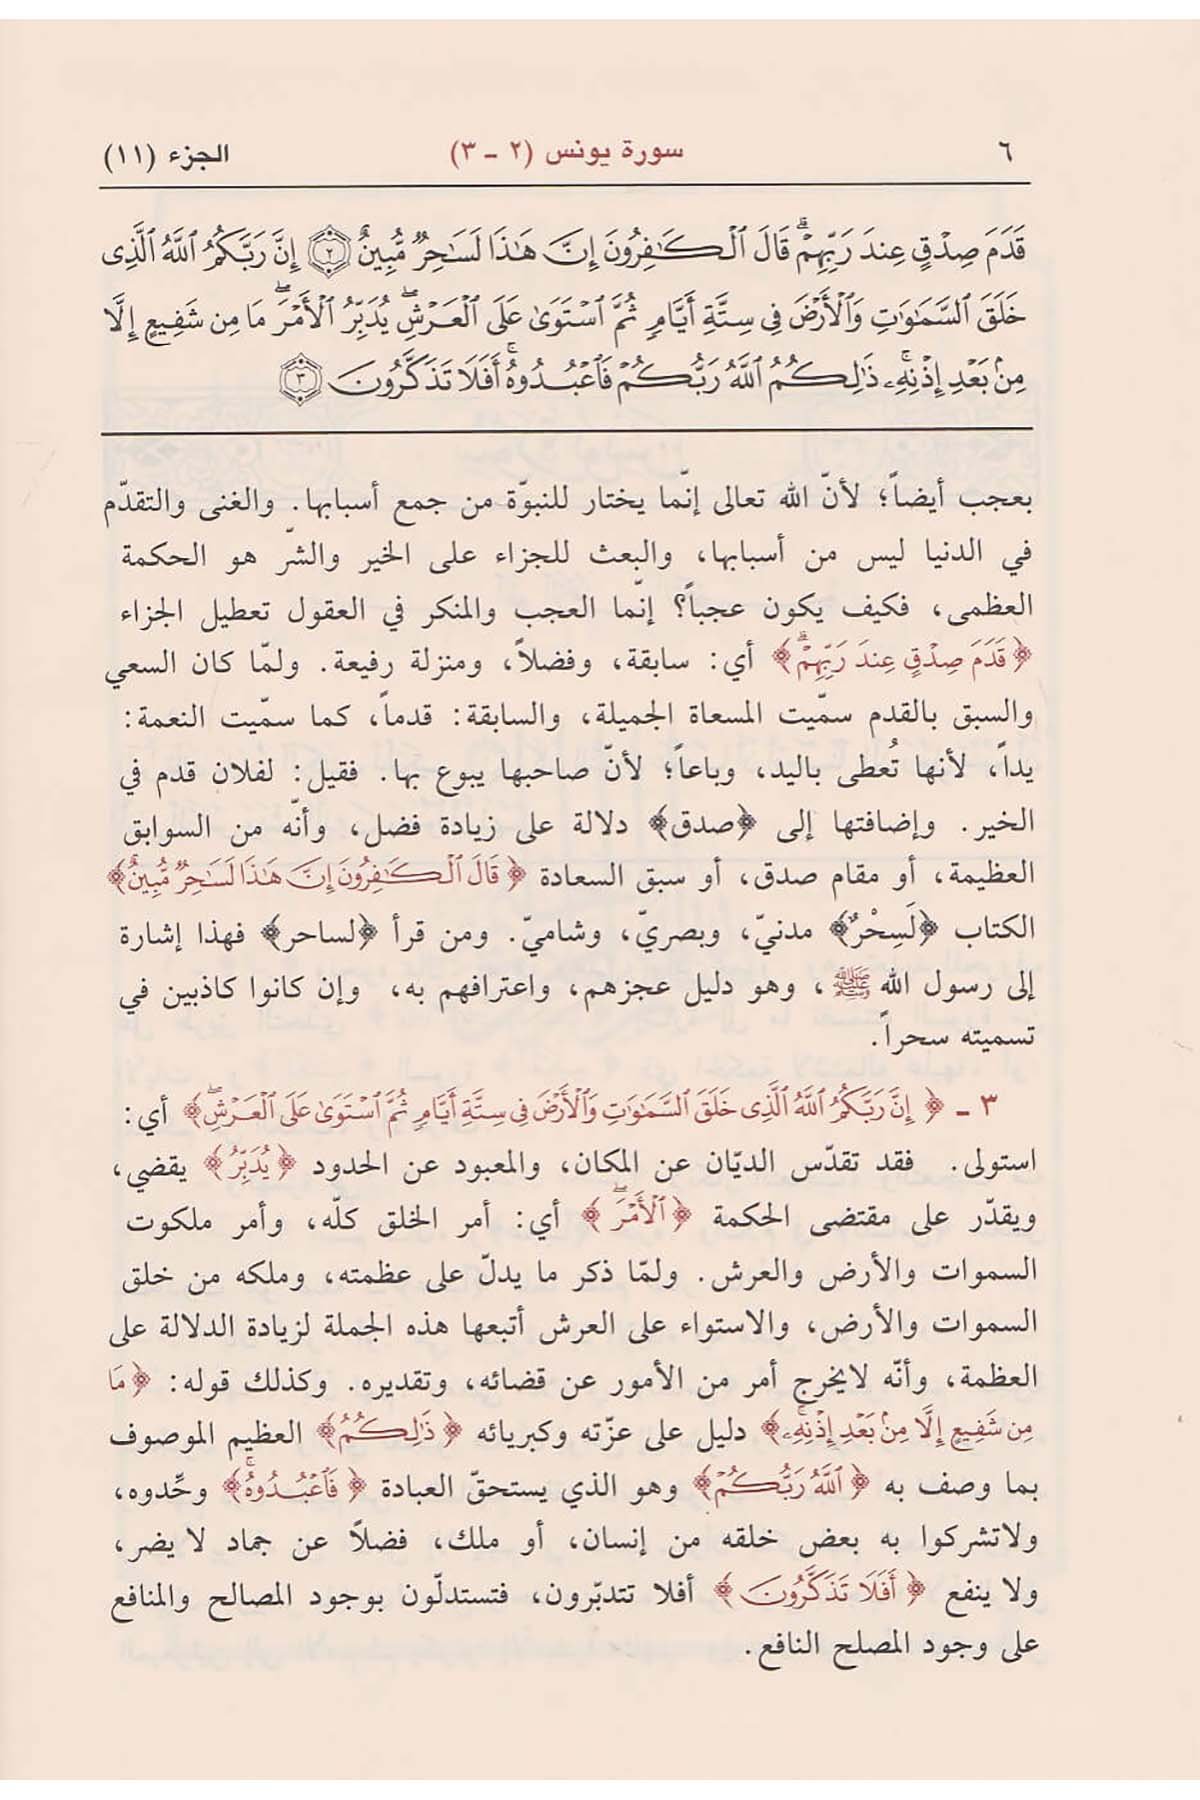 ٦ سورة يونس (٢ - ٣) الجزء (١١)
قَدَمَ صِدْقٍ عِندَ رَبِّهِمْ ۗ قَالَ ٱلْكَٰفِرُونَ إِنَّ هَٰذَا لَسَٰحِرٌ مُّبِينٌ ۝٢ إِنَّ رَبَّكُمُ ٱللَّهُ ٱلَّذِى
خَلَقَ ٱلسَّمَٰوَٰتِ وَٱلْأَرْضَ فِى سِتَّةِ أَيَّامٍ ثُمَّ ٱسْتَوَىٰ عَلَى ٱلْعَرْشِ ۖ يُدَبِّرُ ٱلْأَمْرَ ۖ مَا مِن شَفِيعٍ إِلَّا
مِنۢ بَعْدِ إِذْنِهِۦ ۚ ذَٰلِكُمُ ٱللَّهُ رَبُّكُمْ فَٱعْبُدُوهُ ۚ أَفَلَا تَذَكَّرُونَ ۝٣
بعجب أيضاً؛ لأنّ الله تعالى إنّما يختار للنبوّة من جمع أسبابها. والغنى والتقدّم
في الدنيا ليس من أسبابها، والبعث للجزاء على الخير والشرّ هو الحكمة
العظمى، فكيف يكون عجباً؟ إنّما العجب والمنكر في العقول تعطيل الجزاء
﴿قَدَمَ صِدْقٍ عِندَ رَبِّهِمْ ۗ﴾ أي: سابقة، وفضلاً، ومنزلة رفيعة. ولمّا كان السعي
والسبق بالقدم سمّيت المسعاة الجميلة، والسابقة: قدماً، كما سمّيت النعمة:
يداً، لأنها تُعطى باليد، وباعاً؛ لأنّ صاحبها يبوع بها. فقيل: لفلان قدم في
الخير. وإضافتها إلى ﴿صدق﴾ دلالة على زيادة فضل، وأنّه من السوابق
العظيمة، أو مقام صدق، أو سبق السعادة ﴿قَالَ ٱلْكَٰفِرُونَ إِنَّ هَٰذَا لَسَٰحِرٌ مُّبِينٌ﴾
الكتاب ﴿لَسِحْرٌ﴾ مدنيّ، وبصريّ، وشاميّ. ومن قرأ ﴿لساحر﴾ فهذا إشارة
إلى رسول الله ﷺ، وهو دليل عجزهم، واعترافهم به، وإن كانوا كاذبين في
تسميته سحراً.
٣ - ﴿إِنَّ رَبَّكُمُ ٱللَّهُ ٱلَّذِى خَلَقَ ٱلسَّمَٰوَٰتِ وَٱلْأَرْضَ فِى سِتَّةِ أَيَّامٍ ثُمَّ ٱسْتَوَىٰ عَلَى ٱلْعَرْشِ ۖ﴾ أي:
استولى. فقد تقدّس الديّان عن المكان، والمعبود عن الحدود ﴿يُدَبِّرُ﴾ يقضي،
ويقدّر على مقتضى الحكمة ﴿ٱلْأَمْرَ ۖ﴾ أي: أمر الخلق كلّه، وأمر ملكوت
السموات والأرض والعرش. ولمّا ذكر ما يدلّ على عظمته، وملكه من خلق
السموات والأرض، والاستواء على العرش أتبعها هذه الجملة لزيادة الدلالة على
العظمة، وأنّه لايخرج أمر من الأمور عن قضائه، وتقديره. وكذلك قوله: ﴿مَا
مِن شَفِيعٍ إِلَّا مِنۢ بَعْدِ إِذْنِهِۦ ۚ﴾ دليل على عزّته وكبريائه ﴿ذَٰلِكُمُ﴾ العظيم الموصوف
بما وصف به ﴿ٱللَّهُ رَبُّكُمْ﴾ وهو الذي يستحقّ العبادة ﴿فَٱعْبُدُوهُ ۚ﴾ وحِّدوه،
ولاتشركوا به بعض خلقه من إنسان، أو ملك، فضلاً عن جماد لا يضر،
ولا ينفع ﴿أَفَلَا تَذَكَّرُونَ﴾ أفلا تتدبّرون، فتستدلّون بوجود المصالح والمنافع
على وجود المصلح النافع.